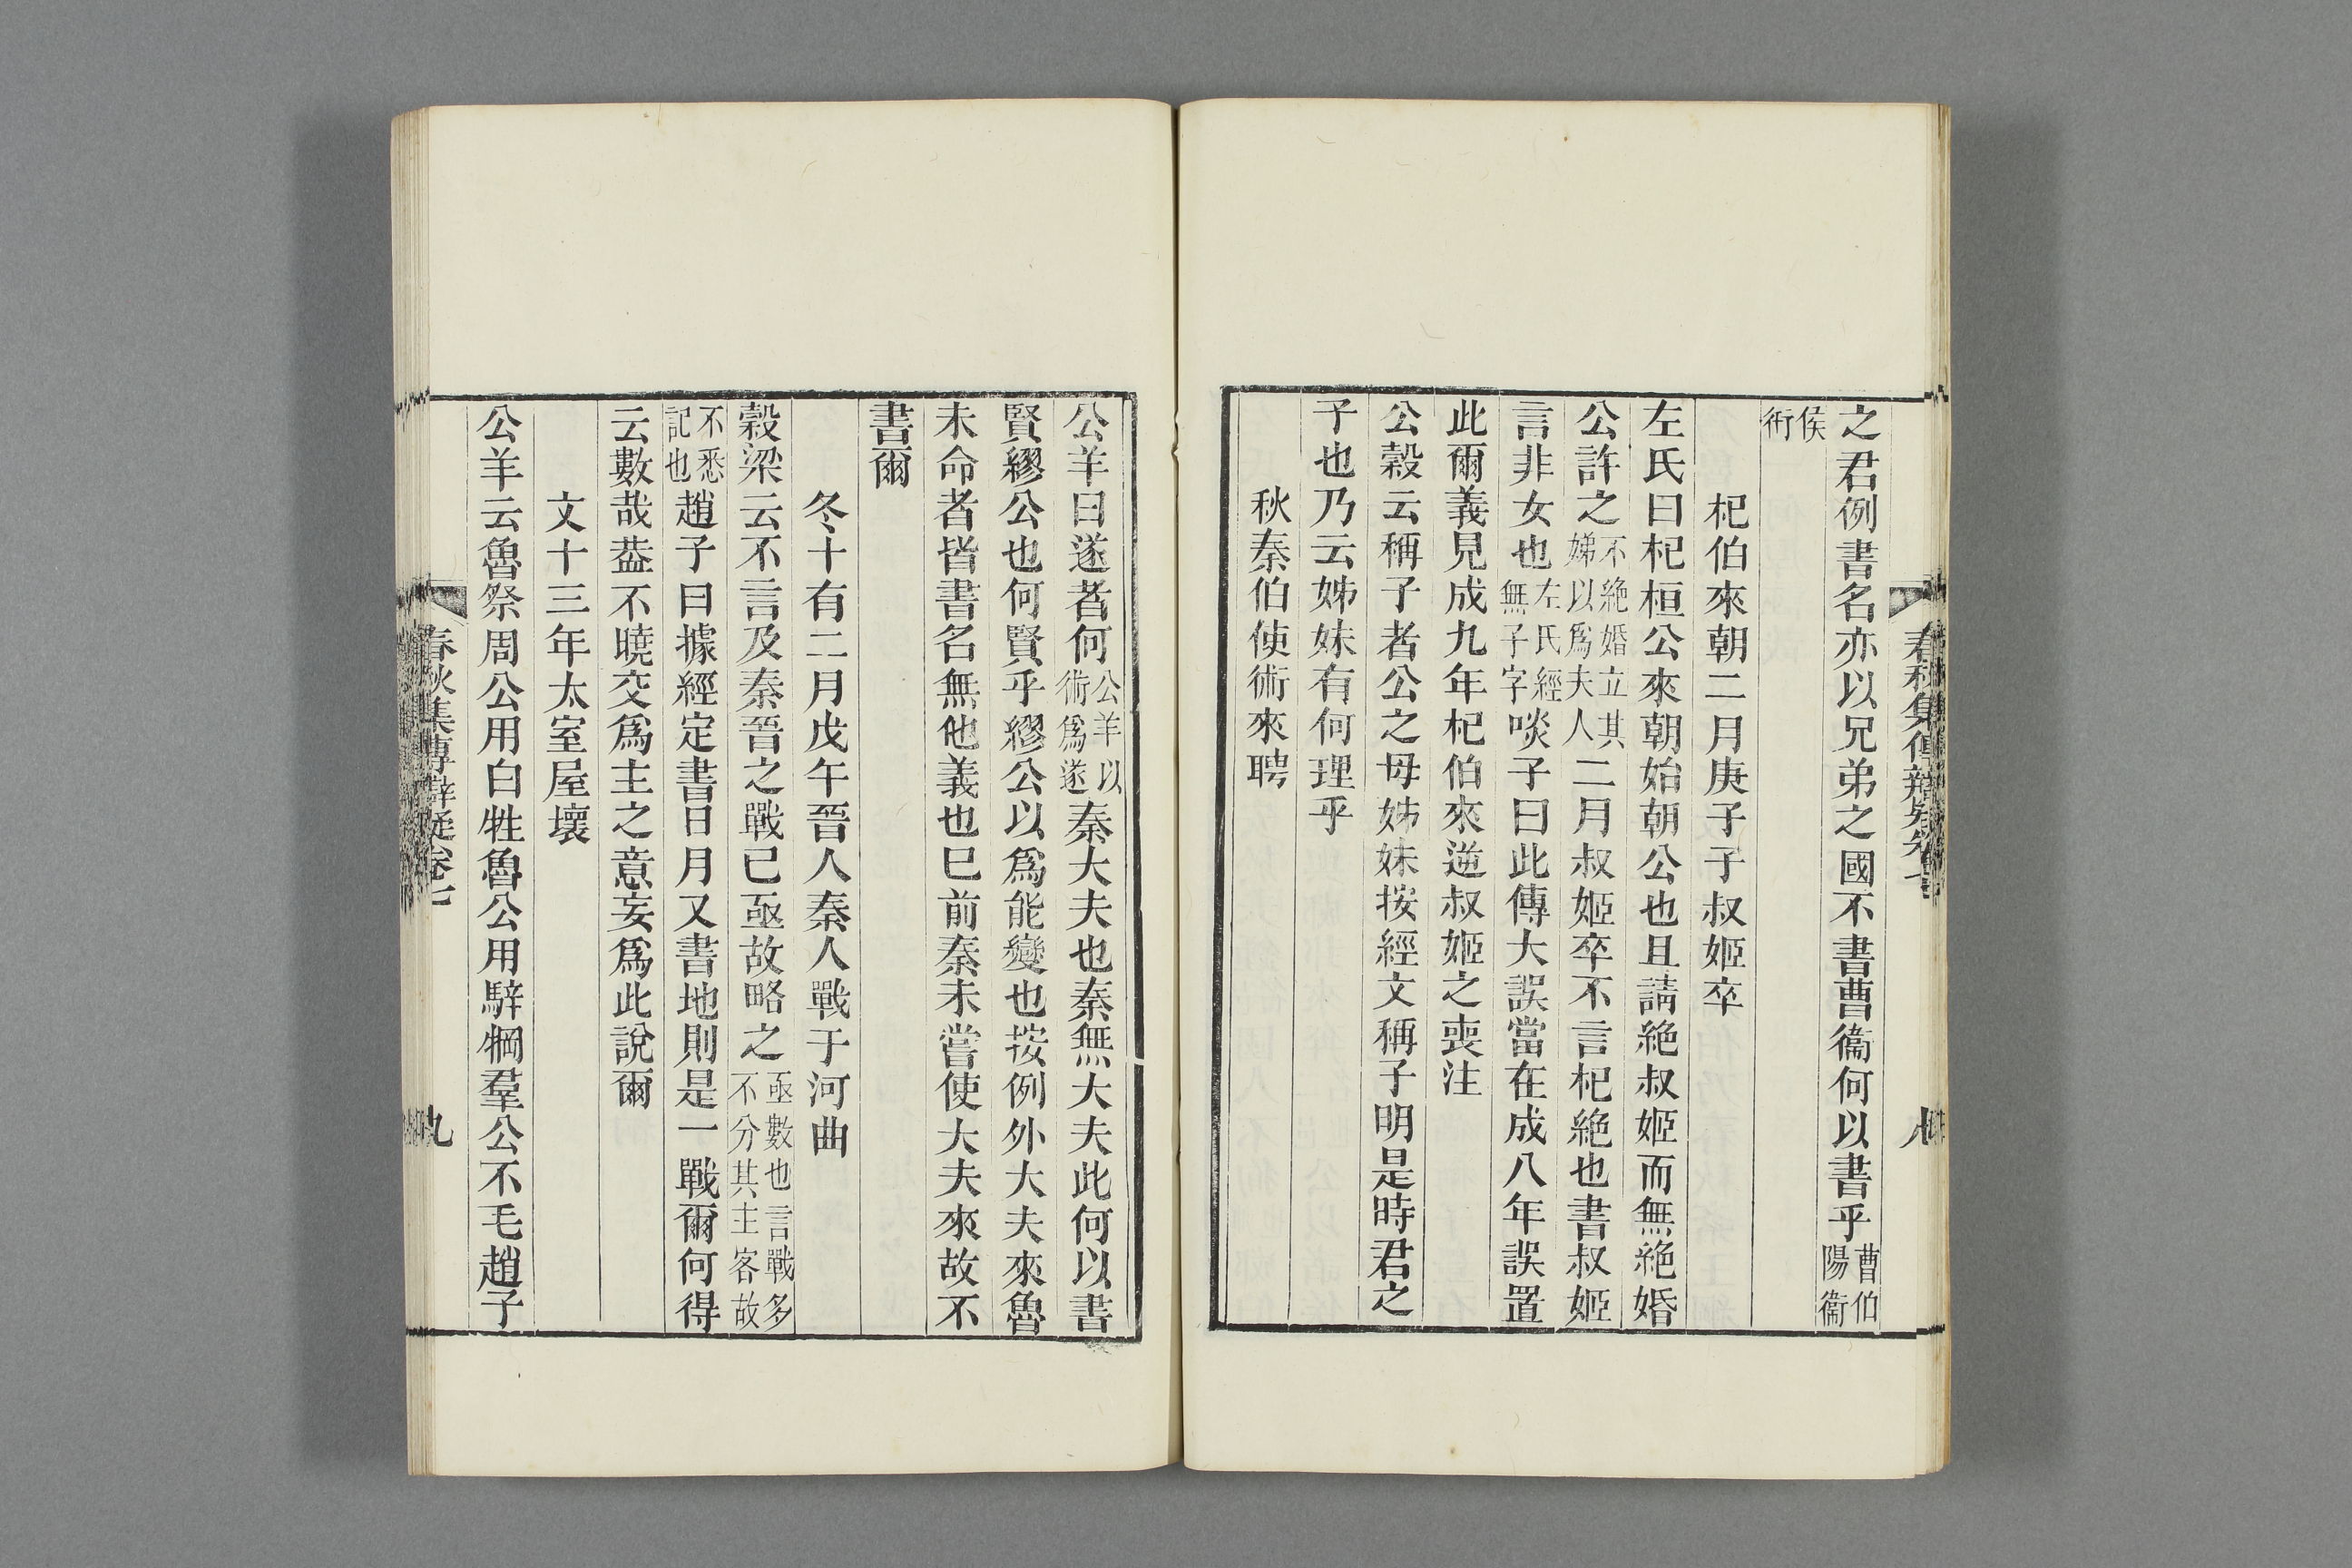 之君例書名亦以兄弟之國不書曹衞何以書乎曹伯陽衞
侯衎
杞伯來朝二月庚子子叔姬卒
左氏曰杞桓公來朝始朝公也且請絶叔姬而無絶婚
公許之不絶婚立其娣以爲夫人二月叔姬卒不言杞絶也書叔姬
言非女也左氏經無子字啖子曰此傳大誤當在成八年誤置
此爾義見成九年杞伯來逆叔姬之喪注
公榖云稱子者公之母姊妹按經文稱子明是時君之
子也乃云姊妹有何理乎
秋秦伯使術來聘
公羊曰遂者何公羊以術爲遂秦大夫也秦無大夫此何以書
賢繆公也何賢乎繆公以爲能變也按例外大夫來魯
未命者皆書名無他義也巳前秦未嘗使大夫來故不
書爾
冬十有二月戊午晉人秦人戰于河曲
榖梁云不言及秦晉之戰已亟故略之亟數也言戰多不分其主客故
不悉記也趙子曰據經定書日月又書地則是一戰爾何得
云數哉葢不曉交爲主之意妄爲此說爾
文十三年太室屋壞
公羊云魯祭周公用白牲魯公用騂犅羣公不毛趙子
春秋集傳辯疑卷七
九